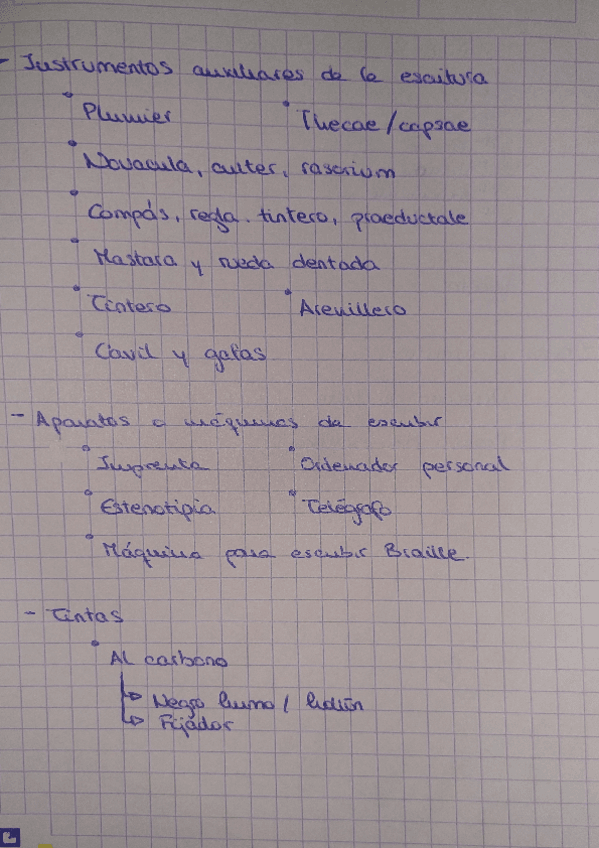 - Instrumentos auxiliares de la escritura
• Plumier • Thecae / capsae
• Novacula, culter, rasorium
• Compás, regla, tintero, praeductale
• Mastara y rueda dentada
• Tintero • Arenillero
• Cavil y gafas
- Aparatos o máquinas de escribir
• Imprenta • Ordenador personal
• Estenotipia • Telégrafo
• Máquina para escribir Braille.
- Tintas
• Al carbono
→ Negro humo /
→ Fijador